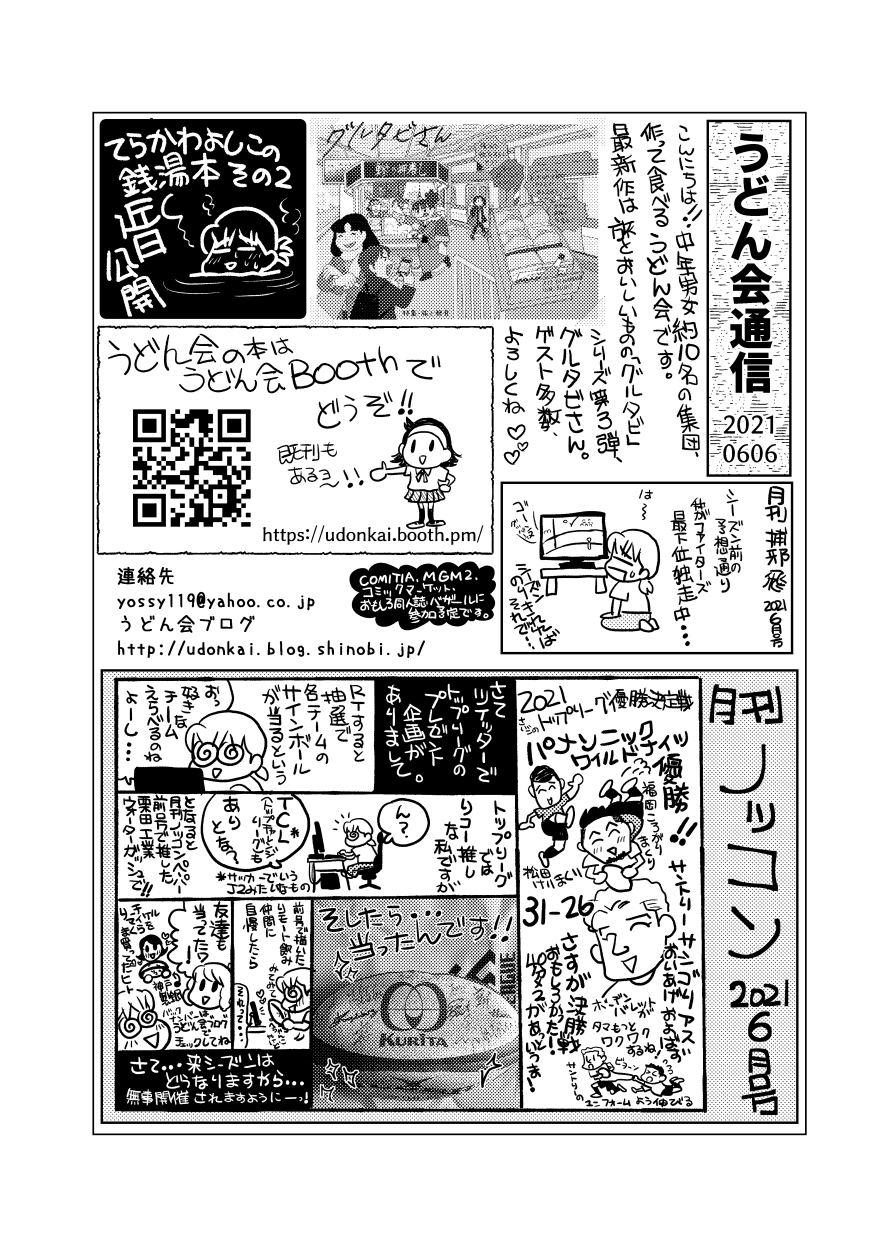 うどん会通信
2021
0606
こんにちは!!中年男女約10名の集団、
作って食べるうどん会です。
最新作は旅とおいしいものの「グルタビ」
シリーズ第3弾、
グルタビさん。
ゲスト多数、
よろしくね♡♡
グルタビさん
てらかわよしこの
銭湯本その2
近日
公開
うどん会の本は
うどん会Boothで
どうぞ!!
既刊も
あるヨ〜!!
https://udonkai.booth.pm/
連絡先
yossy119@yahoo.co.jp
うどん会ブログ
http://udonkai.blog.shinobi.jp/
COMITIA、MGM2、
コミックマーケット、
おもしろ同人誌バザールに
参加予定です。
2021 6月号
シーズン前の
予想通り
我がファイターズ
最下位独走中…
は〜
ゴー
月刊ノッコン
2021
6月号
2021
さいごのトップリーグ優勝決定戦
パナソニック
ワイルドナイツ
優勝!!
福岡こうがり
まっくり
松田
けりまくり
31-26
サントリーサンゴリアス
おいあげおよばず
さすが決勝戦
おもしろかった!
ボーデン
バレットが
タマもつと
ワクワク
するね!
ビヨーン
サントリーの
ユニフォームよう伸びる
さて
ツイッターで
トップリーグの
プレゼント
企画が
ありまして。
RTすると
抽選で
各チームの
サインボール
が当るという
おっ
好きな
チーム
えらべるのね
よーし…
トップリーグ
では
リコー推し
な私ですが
ん?
TCL*
(トップチャレンジ
リーグ)も
あり
とな?
*サッカーでいう
J2みたいなもの
となると
月刊ノッコンペーパー
前号で推した
栗田工業
ウォーターガッシュで!!
そしたら…
当ったんです!!
KURITA
前号で描いた
リモート飲み
仲間に
自慢したら
みてみて
それって…
友達も
当ってた!
神戸
製鋼
バック
ナンバーは
うどん会ブログで
チェックしてね
さて…来シーズンは
どうなりますやら…
無事開催されますようにーっ!